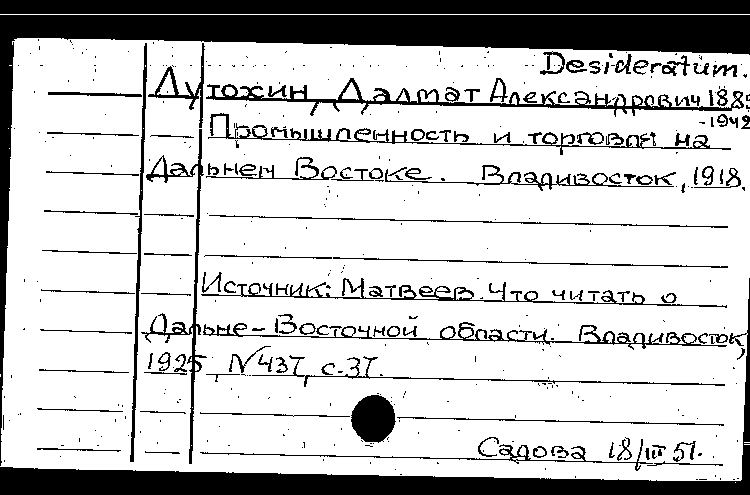 Desideratum.
Лутохин, Далмат Александрович 1885
-1942
Промышленность и торговля на
Дальнем Востоке. Владивосток, 1918.
Источник: Матвеев. Что читать о
Дальне-Восточной области. Владивосток,
1925, N437, с.37.
Садова 18/III 51.